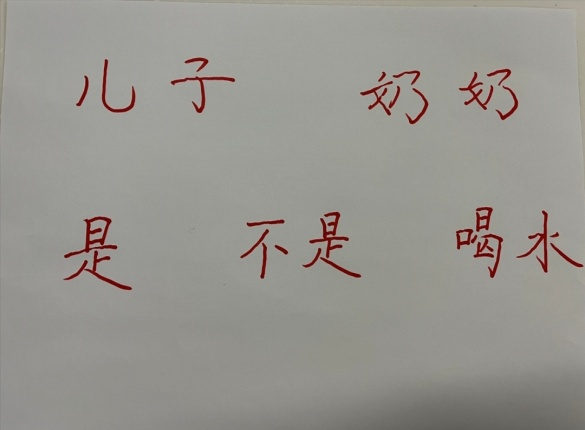 儿子 奶奶
是 不是 喝水